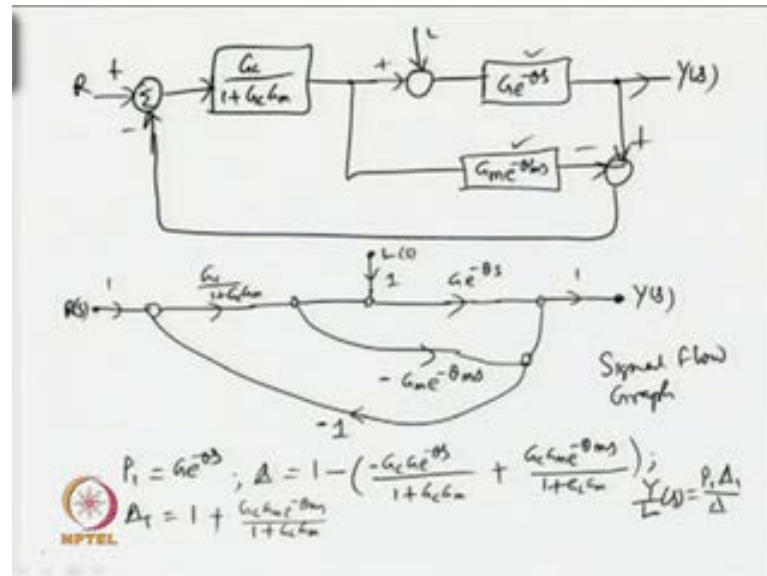 L
R + Σ - Gc / 1 + GcGm + Ge^-θs Y(s)
Gme^-θms - +
R(s) 1 Gc / 1+GcGm L(s) 1 Ge^-θs 1 Y(s)
- Gme^-θms
-1
Signal Flow
Graph
P₁ = Ge^-θs ; Δ = 1 - ( -GcGe^-θs / 1 + GcGm + GcGme^-θms / 1 + GcGm ) ;
Δ₁ = 1 + GcGme^-θms / 1 + GcGm
Y/L (s) = P₁Δ₁ / Δ
NPTEL